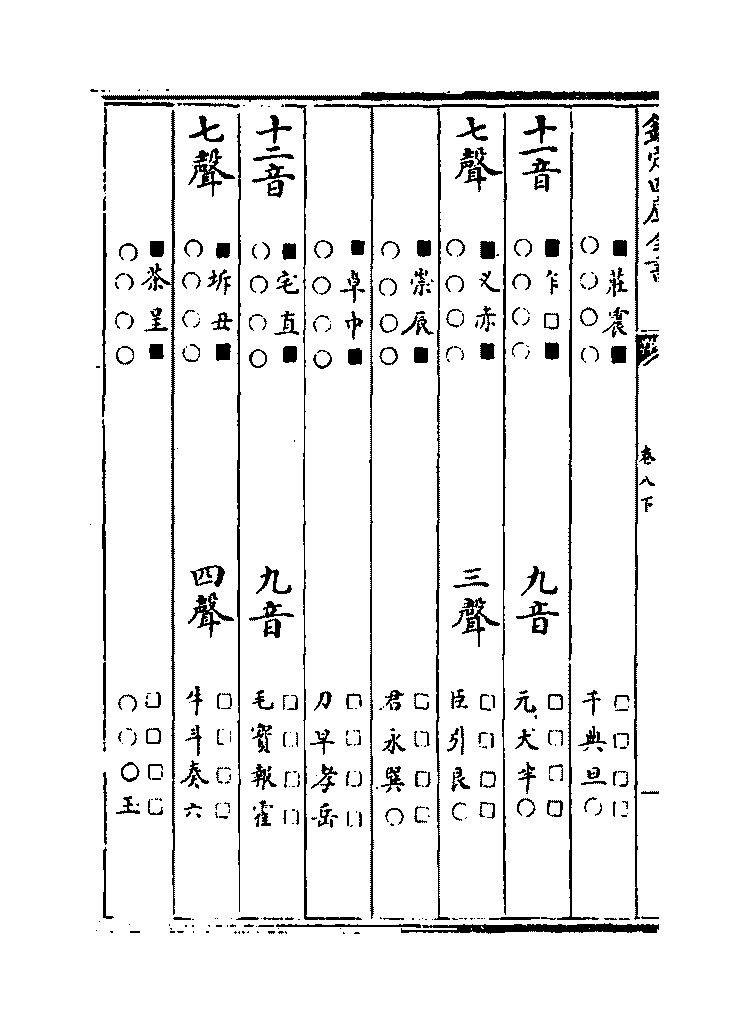 欽定四庫全書 卷八下
■莊震■ ○○○○ □□□□ 干典旦○
十一音 ■乍□■ ○○○○ 九音 □□□□ 元犬半○
七聲 ■叉赤■ ○○○○ 三聲 □□□□ 臣引艮○
■崇辰■ ○○○○ □□□□ 君永巽○
■卓中■ ○○○○ □□□□ 刀早孝岳
十二音 ■宅直■ ○○○○ 九音 □□□□ 毛寳報霍
七聲 ■坼丑■ ○○○○ 四聲 □□□□ 牛斗奏六
■茶呈■ ○○○○ □□□□ ○○○玉